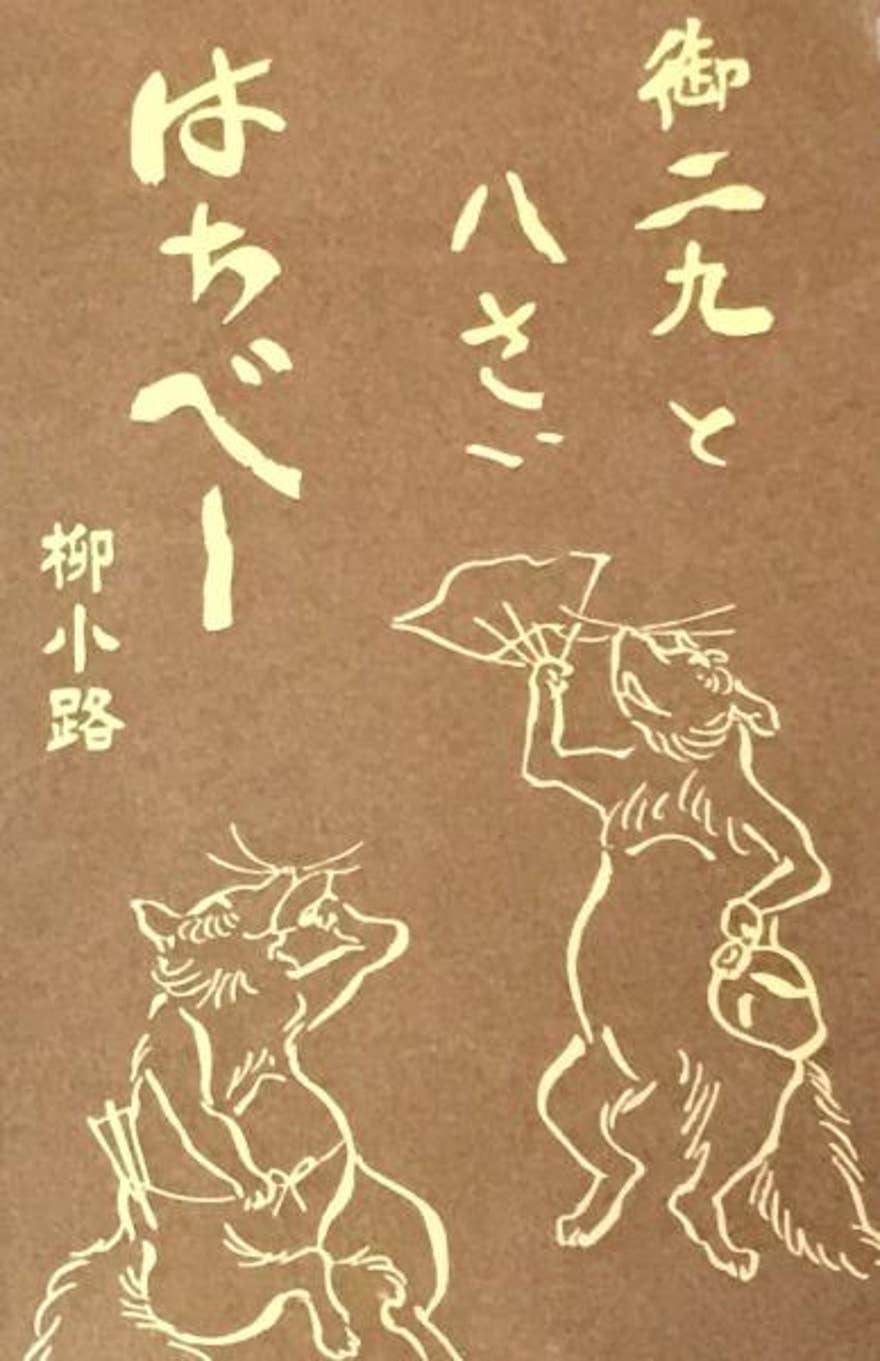 御二九と
八さい
はちべー
柳小路